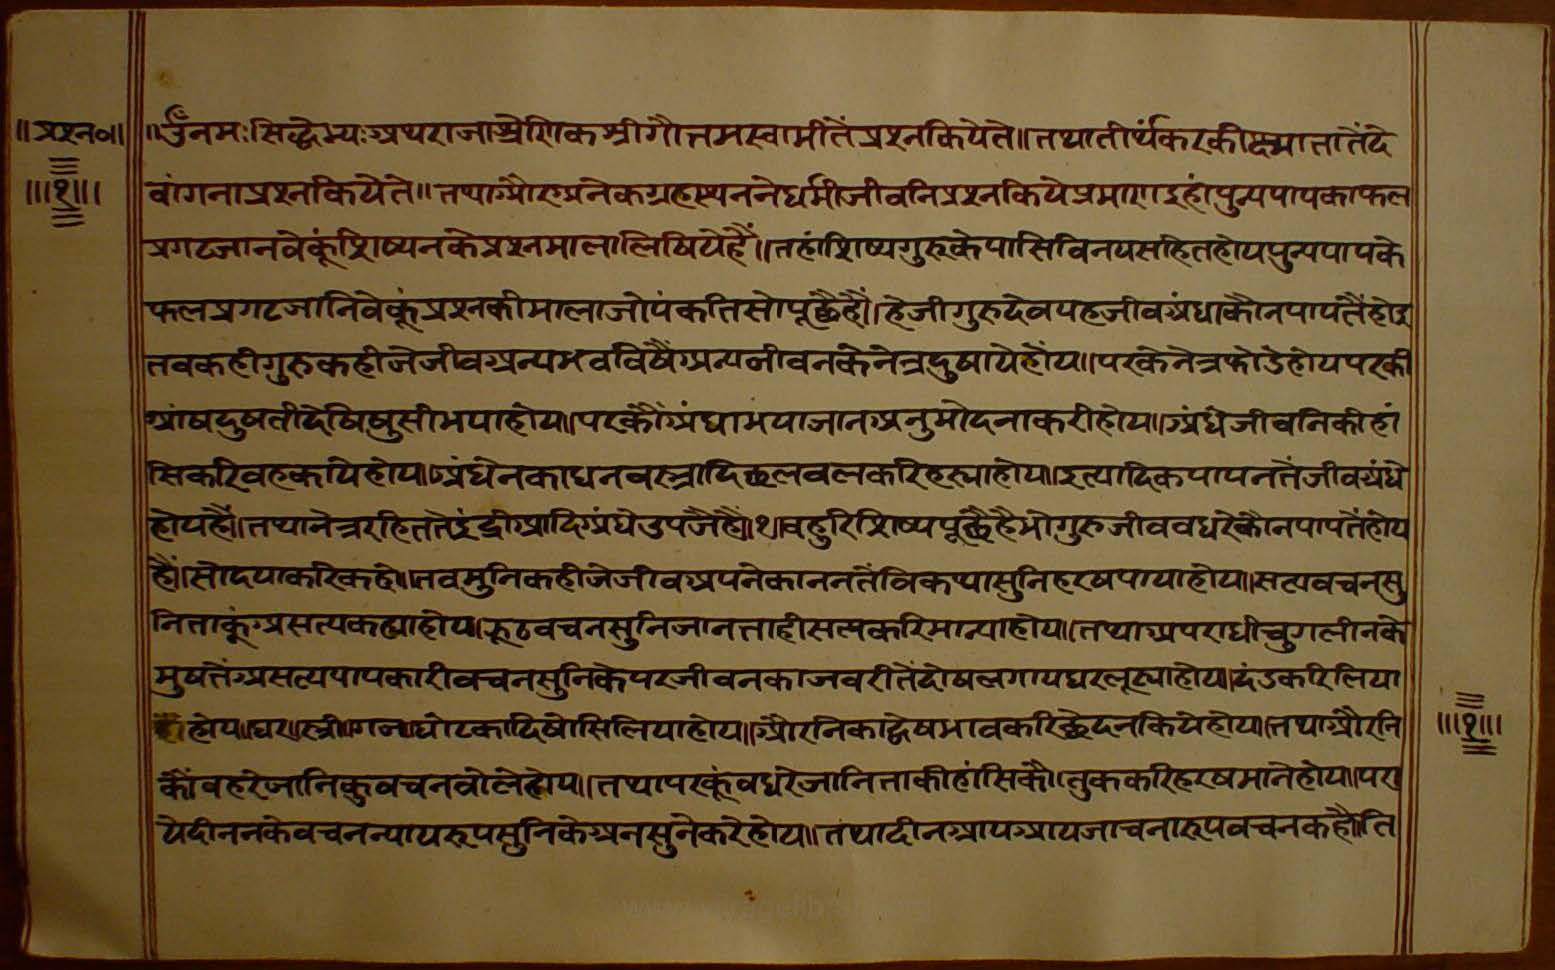 ॥प्रश्न०॥
॥१॥
॥ॐनमःसिद्धेभ्यःअथराजाश्रेणिकश्रीगौत्तमस्वामीतैंप्रश्नकियेते॥तथातीर्थंकरकीमातातैंदे
वांगनाप्रश्नकियेते॥तथाऔरअनेकग्रहस्थननेधर्मीजीवनिप्रश्नकियेप्रमाणइहांपुन्यपापकाफल
प्रगटजानवेकूंशिष्यनकेप्रश्नमालालिषियेहैं॥तहांशिष्यगुरुकेपासिविनयसहितहोयपुन्यपापके
फलप्रगटजानिवेकूंप्रश्नकीमालाजोपंकतिसोपूछैहैं॥हेजीगुरुदेवयहजीवअंधाकौनपापतैंहोइ
तवकहीगुरुकहीजेजीवअन्यभवविषैंअन्यजीवनकेनेत्रदुषायेहोंय॥परकेनेत्रफोडेहोयपरकी
आंषदुषतीदेषिषुसीभयाहोय॥परकौंअंधाभयाजानअनुमोदनाकरीहोय॥अंधेजीवनिकीहां
सिकरिवहकायेहोय॥अंधेनकाधनवस्त्रादिछलवलकरिहरयाहोय॥इत्यादिकपापनतैंजीवअंधे
होयहैं॥तथानेत्ररहिततेइंद्रीआदिअंधेउपजैहैं॥१॥वहुरिशिष्यपूछैहैभोगुरुजीववधरेकौनपापतैंहोय
हैं॥सोदयाकरिकहो॥तवमुनिकहीजेजीवअपनेकाननतैंविकथासुनिहरषपायाहोय॥सत्यवचनसु
निताकूंअसत्यकह्याहोय॥झूठवचनसुनिजानताहीसत्यकरिमान्याहोय॥तथाअपराधीचुगलीनके
मुषतैंअसत्यपापकारीवचनसुनिकेपरजीवनकाजवरीतैंदोषलगायघरलूट्याहोय॥दंडकरिलिया
होय॥घर॥स्त्री॥गज॥घोटकादिषोसिलियाहोय॥औरनिकाद्वेषभावकरिछेदनकियेहोय॥तथाऔरनि
कौंवहरेजानिकुवचनवोलेहोय॥तथापरकूंवधरेजानिताकीहांसिकौतुककरिहरषमानेहोय॥परा
येदीननकेवचनन्यायरूपसुनिकेअनसुनेकरेहोय॥तथादीनआयआयजाचनारूपवचनकहैति
॥१॥